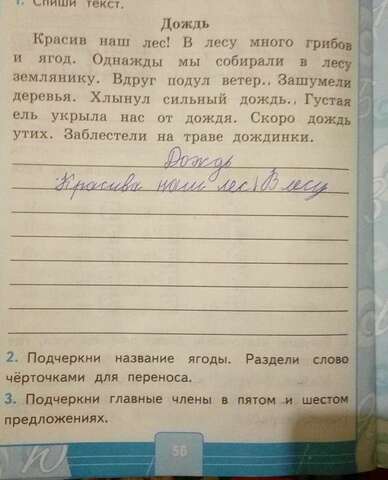 1. Спиши текст.
Дождь
Красив наш лес! В лесу много грибов
и ягод. Однажды мы собирали в лесу
землянику. Вдруг подул ветер.. Зашумели
деревья. Хлынул сильный дождь.. Густая
ель укрыла нас от дождя. Скоро дождь
утих. Заблестели на траве дождинки.
Дождь
Красива наш лес! В лесу
2. Подчеркни название ягоды. Раздели слово
чёрточками для переноса.
3. Подчеркни главные члены в пятом и шестом
предложениях.
56